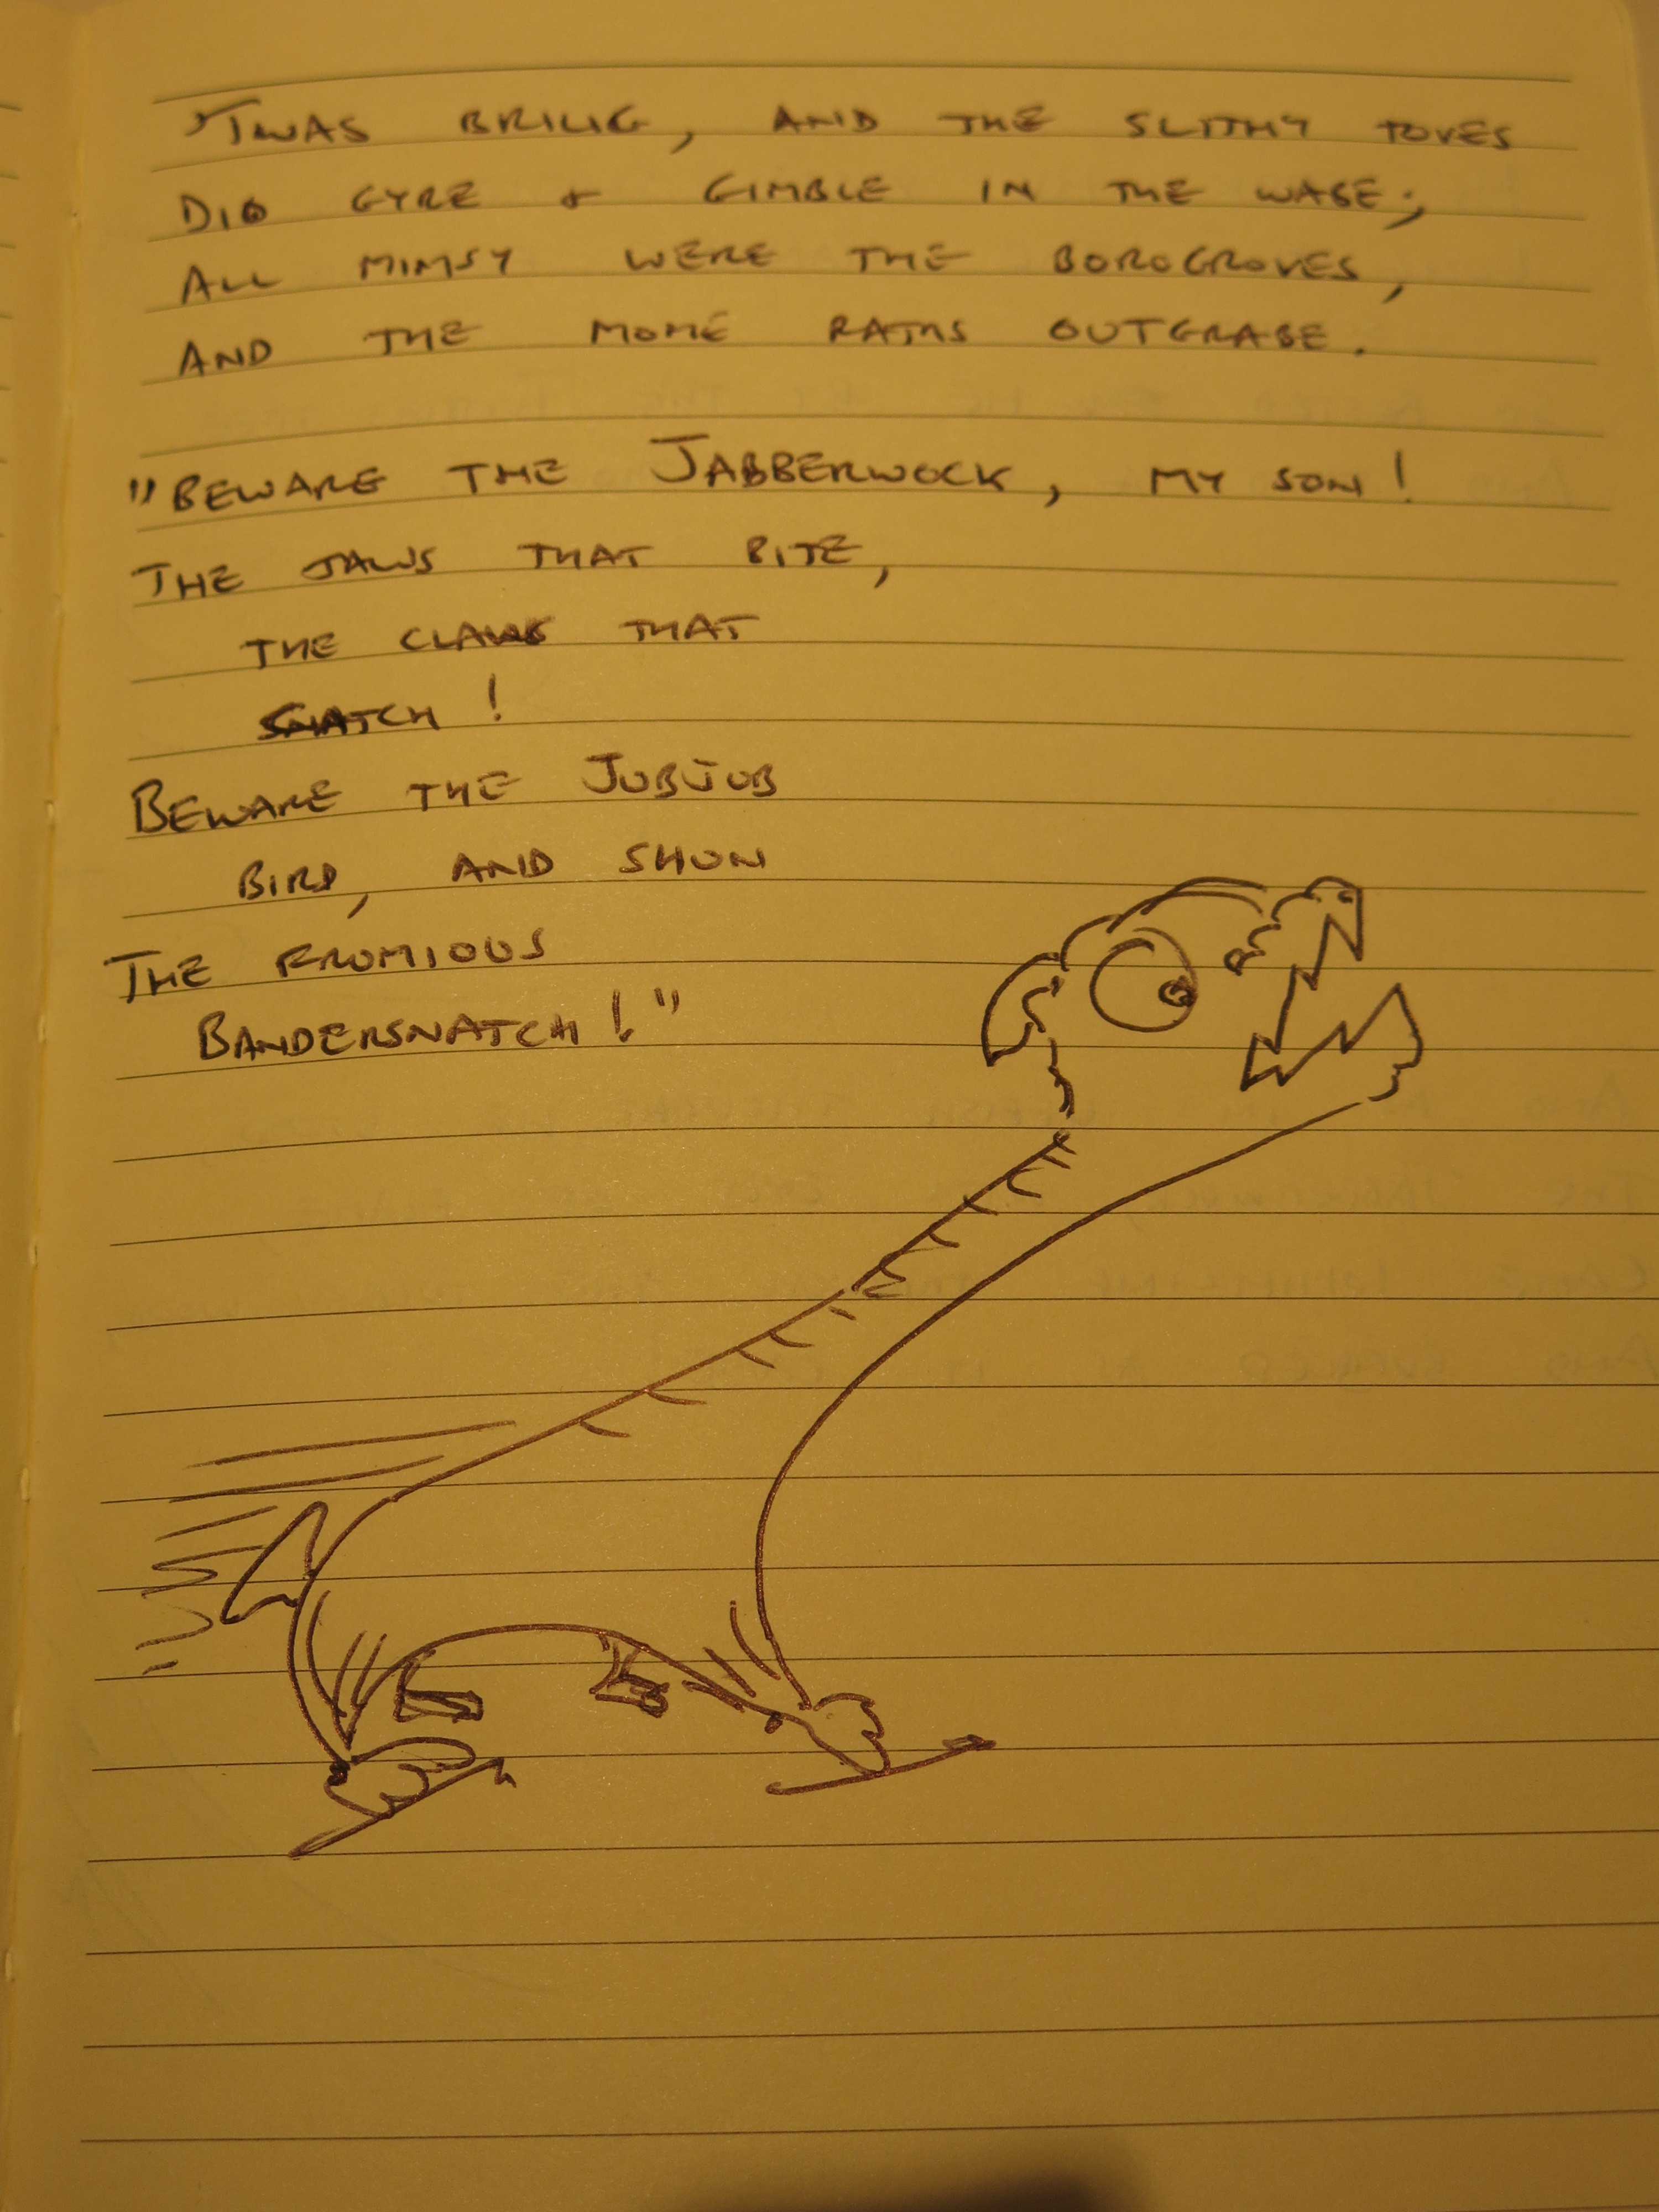 'TWAS BRILIG, AND THE SLITHY TOVES
DID GYRE & GIMBLE IN THE WABE;
ALL MIMSY WERE THE BOROGROVES,
AND THE MOME RATHS OUTGRABE.
"BEWARE THE JABBERWOCK, MY SON!
THE JAWS THAT BITE,
THE CLAWS THAT
SNATCH!
BEWARE THE JUBJUB
BIRD, AND SHUN
THE FRUMIOUS
BANDERSNATCH!"